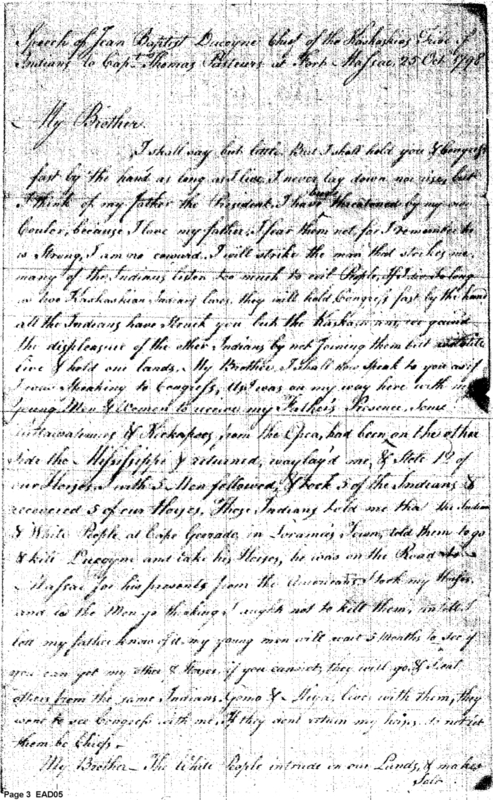 Speech of Jean Baptist Ducoyne Chief of the Kaskaskias Tribe of
Indians to Capt. Thomas Pasteurs at Fort Massac, 25 Oct. 1798
My Brother.
I shall say but little. But I shall hold you & Congress
fast by the hand as long as I live. I never lay down nor rise, but
I think of my father the President. I have been threatened by my own
Couler, because I love my father, I fear them not, for I remember he
is Strong, I am no coward. I will strike the man that strikes me,
many of the Indians listen too much to evil People, so long
as two Kaskaskian lives, they will hold Congress fast by the hand
all the Indians have Struck you but the Kaskaskians, we gained
the displeasure of the other Indians by not Joining them but
live & hold our lands. My Brother, I shall now speak to you as if
I was Speaking to Congress, as I was on my way here with my
young Men & Women to receive my Father's Presence, Some
& Kickapoos from the had been on the other
Side the Mississippi & returned, waylay'd me, & Stole 12 of
our Horses. I with 5 Men followed, & took 5 of the Indians &
recovered 5 of our Horses, These Indians told me that the Indians
& White People at Cape in Loramies Town, told them to go
& kill Ducoyne and take his Horses, he was on the Road to
Massac for his presents from the Americans I took my Horses,
and let the Men go thinking I ought not to kill them, untill I
let my father know of it, my young men will wait 5 Months to see if
you can get my other Horses, if you cannot, they will go, & Steal
others from the same Indians, Gomo & live with them, they
went to see Congress with me, If they don't return my horses, do not let
them be Chiefs.
My Brother – The White People intrude on our Lands, & makes
Page 3 EAD05